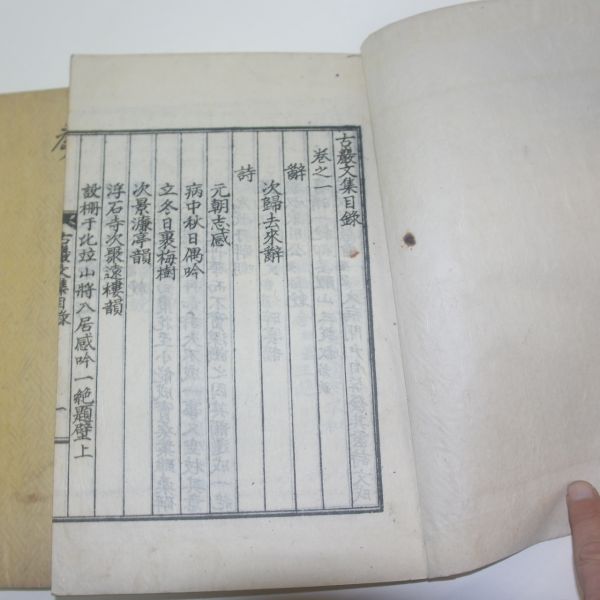 古巖文集目錄
卷之一
辭
次歸去來辭
詩
元朝志感
病中秋日偶吟
立冬日裹梅樹
次景濂亭韻
浮石寺次聚遠樓韻
設柵于北竝山將入居感吟一絶題壁上
古巖文集目錄
一